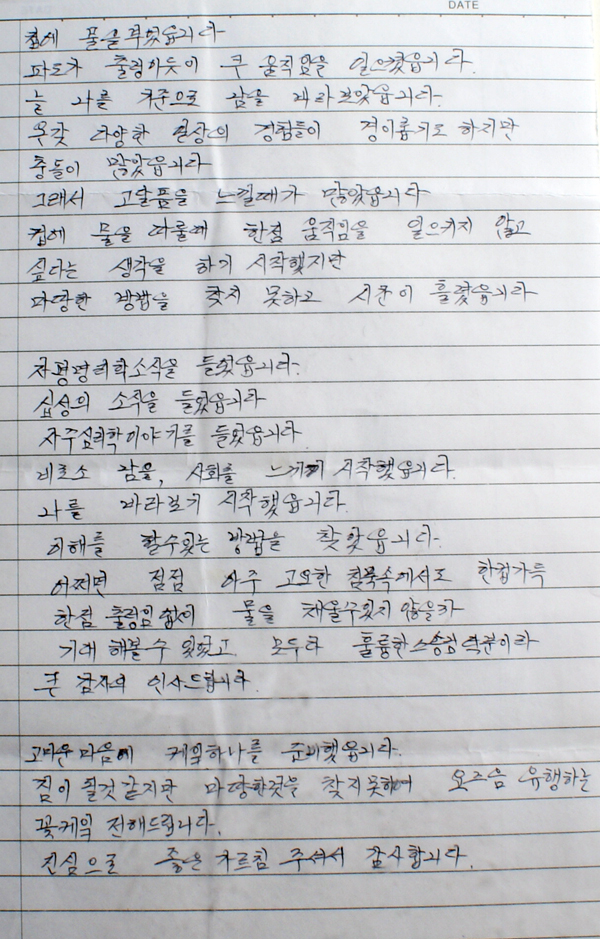 DATE
컵에 물을 부었읍니다
파도가 출렁이듯이 큰 움직임을 일으켰읍니다.
늘 나를 기준으로 남을 바라보았읍니다.
온갖 다양한 일상의 경험들이 경이롭기도 하지만
충돌이 많았읍니다
그래서 고달픔을 느낄때가 많았읍니다
컵에 물을 따를때 한점 움직임을 일으키지 않고
싶다는 생각을 하기 시작했지만
마땅한 방법을 찾지 못하고 시간이 흘렀읍니다
자평명리학소식을 들었읍니다.
십성의 소식을 들었읍니다
사주심리학이야기를 들었읍니다
비로소 남을, 사회를 느끼기 시작했읍니다.
나를 바라보기 시작했읍니다.
이해를 할수있는 방법을 찾았읍니다.
어쩌면 점점 아주 고요한 침묵속에서도 한컵가득
한점 출렁임없이 물을 채울수있지 않을까
기대 해볼수 있었고 모두다 훌륭한스승님 덕분이라
큰 감사의 인사드립니다.
고마운 마음에 케익하나를 준비했읍니다.
짐이 될것같지만 마땅한것을 찾지못하여 요즈음 유행하는
꽃케익 전해드립니다.
진심으로 좋은 가르침 주셔서 감사합니다.